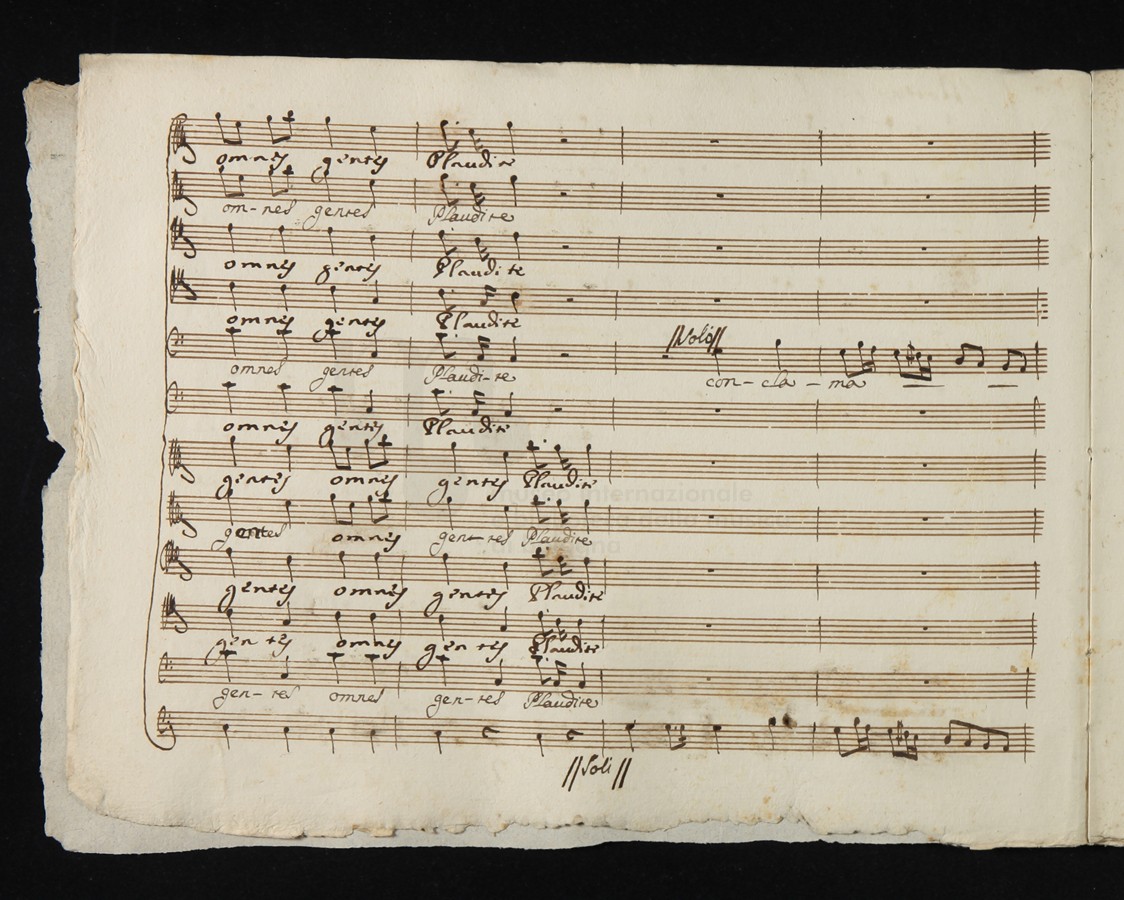 omnes gentes Plaudite
om-nes gentes Plaudite
omnes gentes Plaudite
omnes gentes Plaudite
Solo
omnes gentes Plaudi-te con-cla-ma
omnes gentes Plaudite
gentes omnes gentes Plaudite
gentes omnes gen-tes Plaudite
gentes omnes gentes Plaudite
gen tes omnes gen tes Plaudite
gen-tes omnes gen-tes Plaudite
Soli
museo internazionale